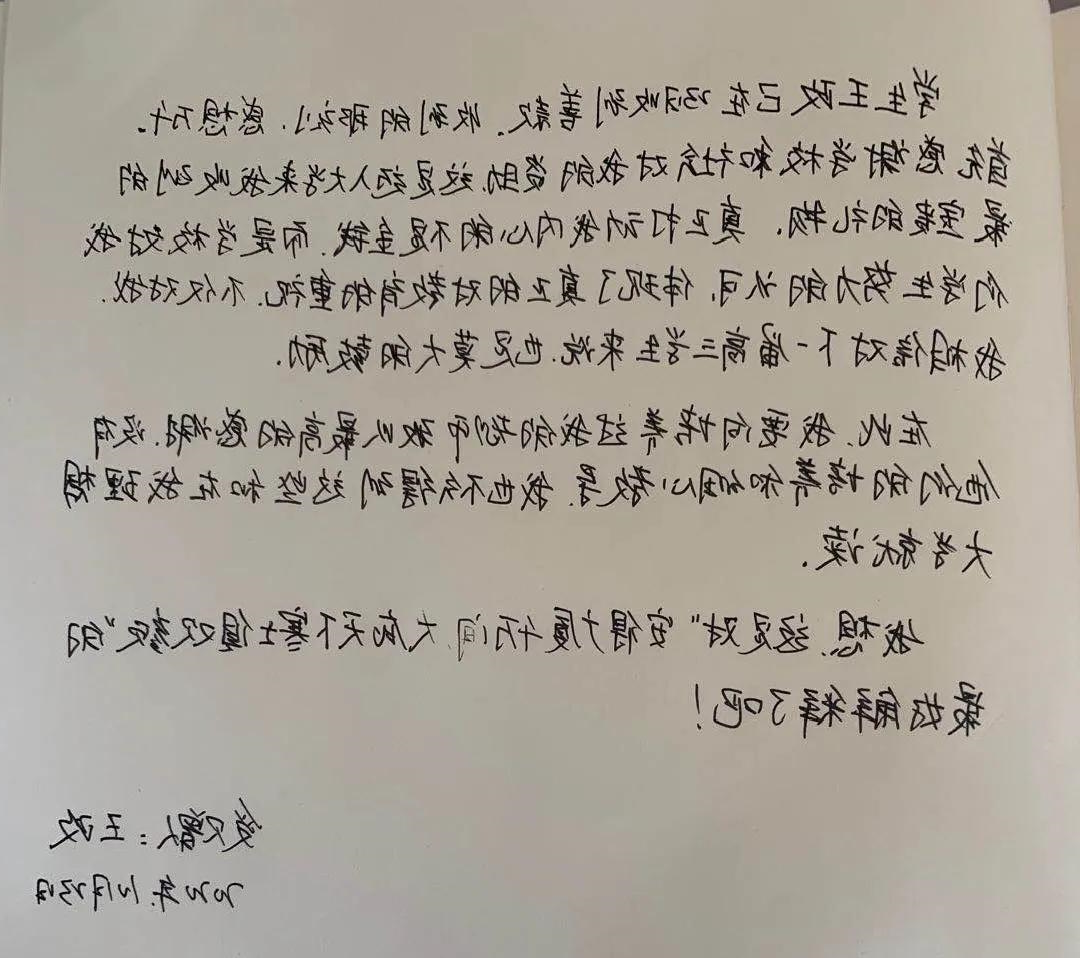 学生王政已在收到善款。收到的那刻,感想万千。
首先感谢学校和社会对我的资助,这是踏入大学来我收到的
最宝贵的礼物。真正打动我内心的不是金钱,而是学校对我
们学生努力的认可,体现了真正的对教育的重视,不仅对我,
我相信对下一届高三学生来说,也是莫大的鼓励。
在此,我要向培养过我的老师致以最高的感谢,没有
他们的培养和细心教导,我也不会得到这些和在我理想
大学就读。
我想,这是对"安得广厦千万间,大庇天下寒士俱欢颜"的
最好解释了吧!
:王政